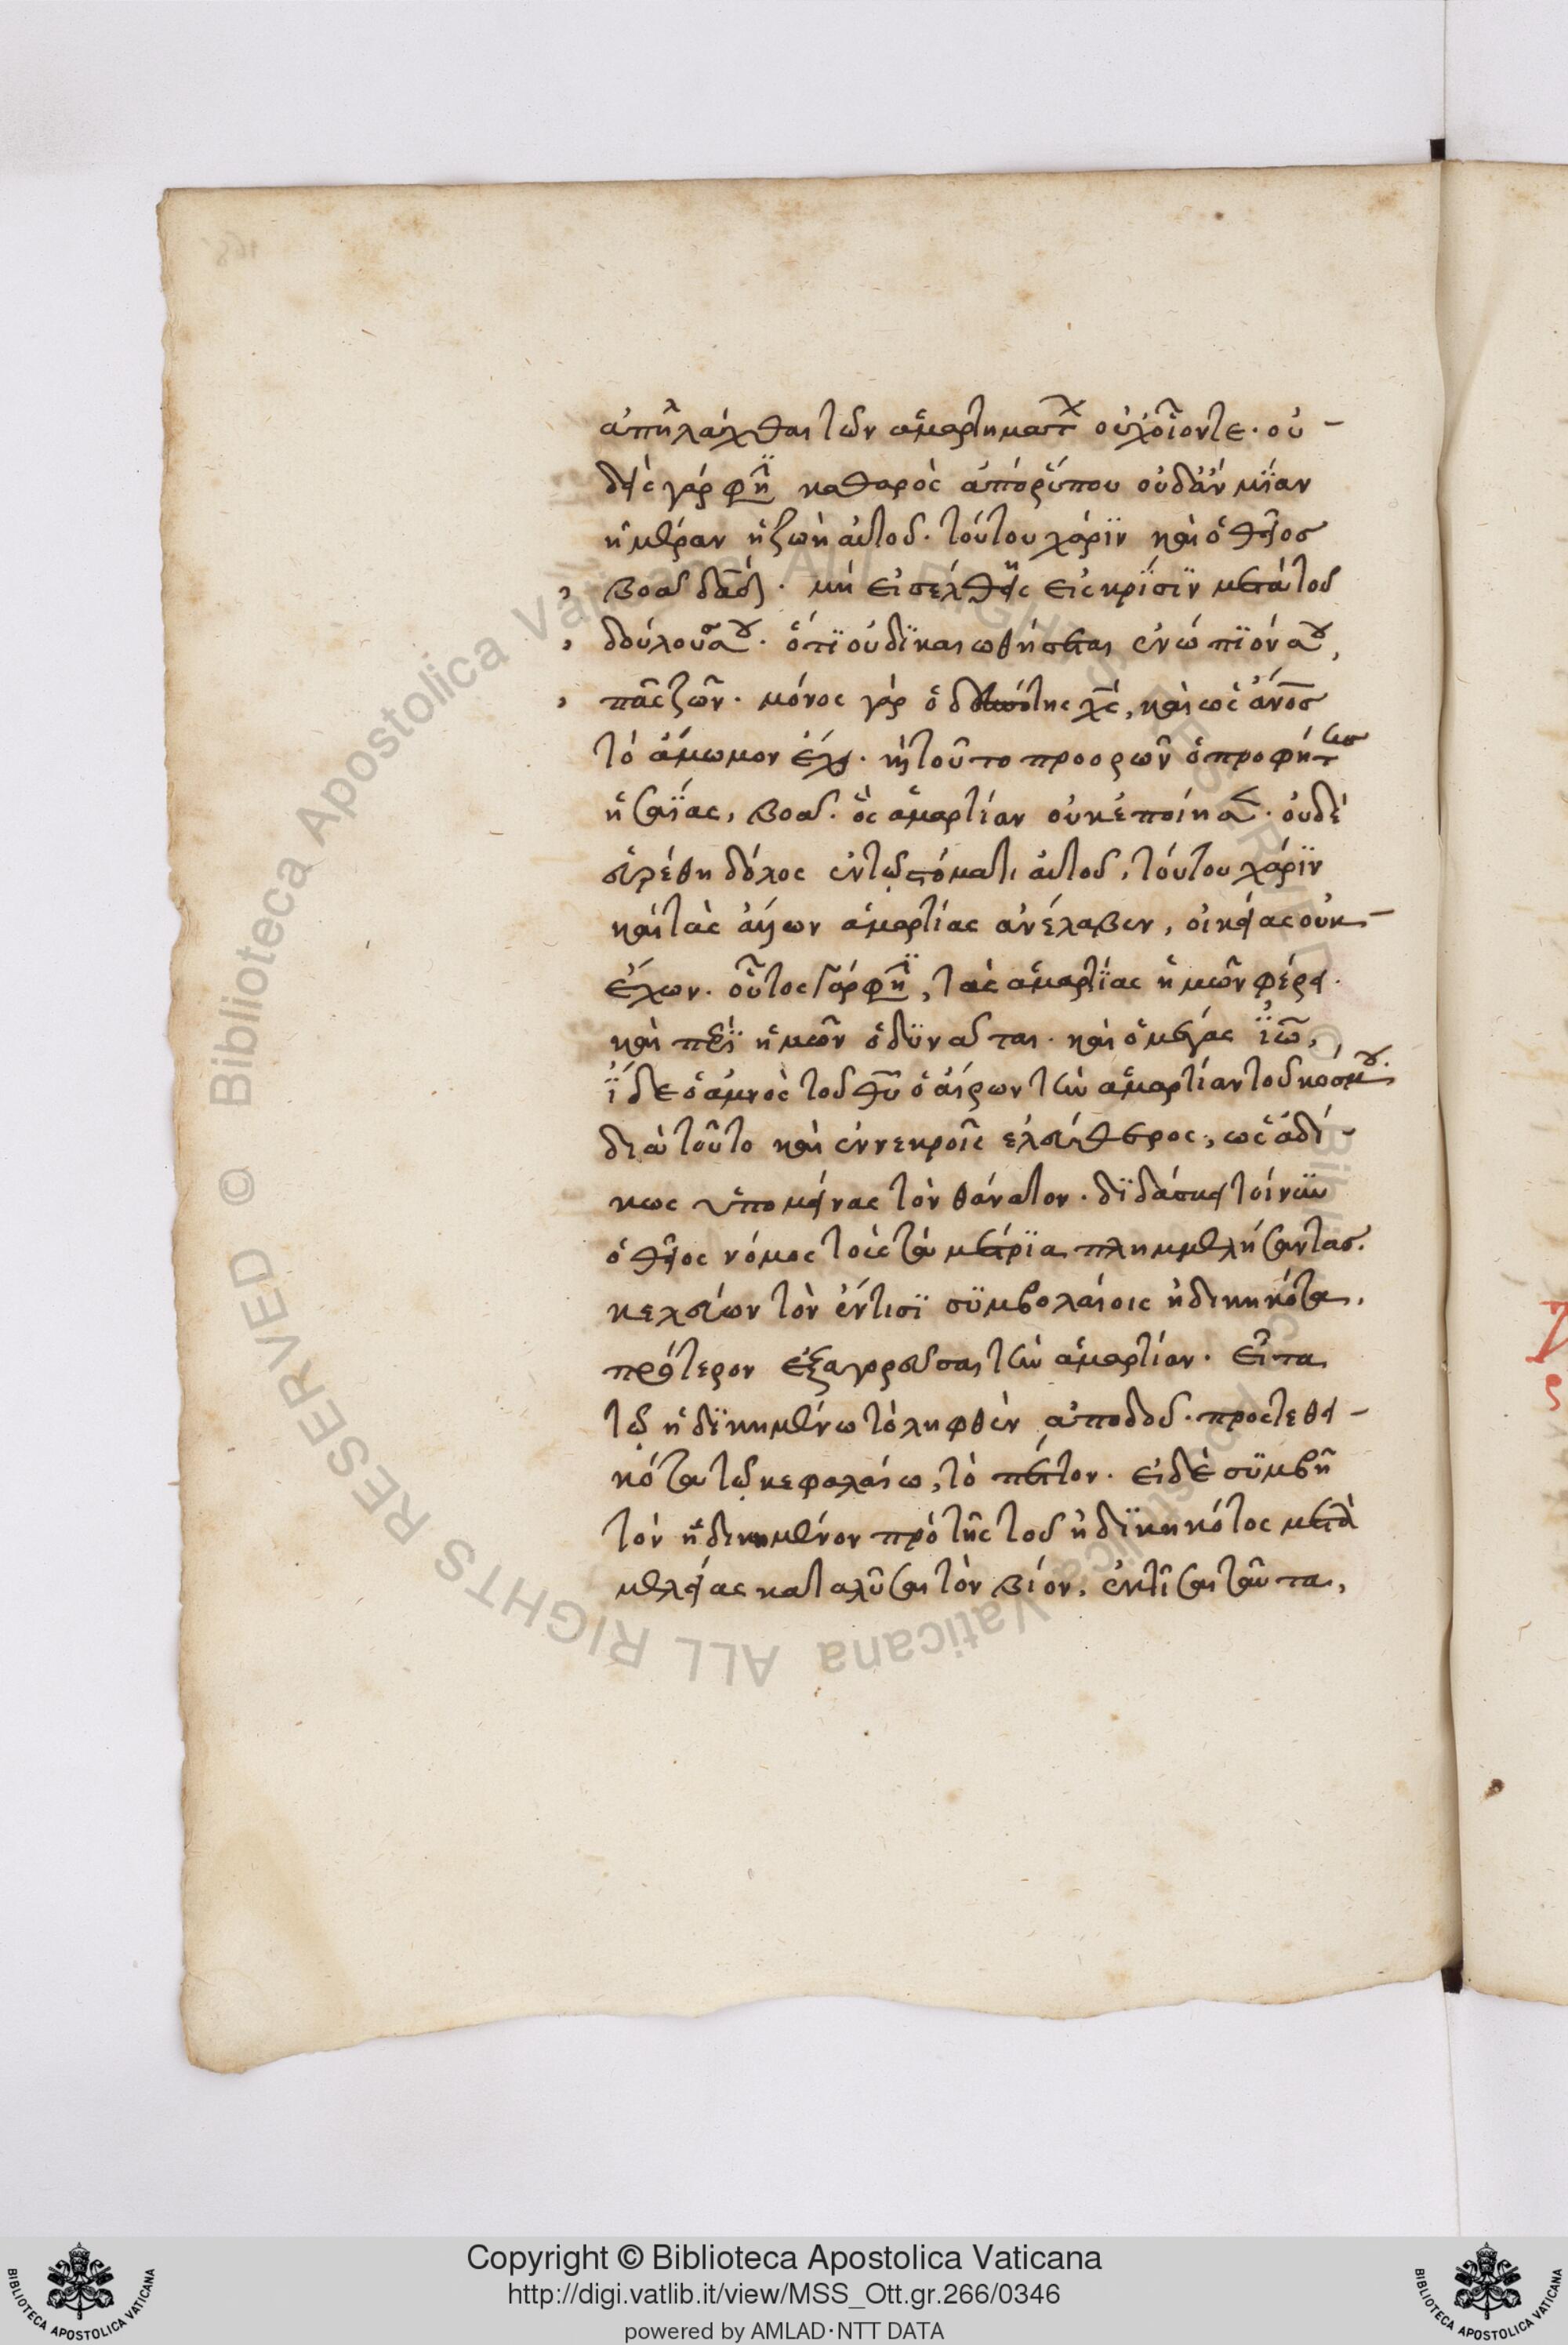 ἀπηλλάχθαι τῶν ἁμαρτημάτων οὐχ οἷόν τε. οὐ-
δεὶς γάρ φησι καθαρὸς ἀπὸ ῥύπου οὐδ' ἂν μίαν
ἡμέραν ἡ ζωὴ αὐτοῦ. τούτου χάριν καὶ ὁ θεῖος
βοᾷ δᾱδ. μὴ εἰσέλθῃς εἰς κρίσιν μετὰ τοῦ
δούλου σου. ὅτι οὐ δικαιωθήσεται ἐνώπιόν σου,
πᾶς ζῶν. μόνος γὰρ ὁ δεσπότης χς̄, καὶ ὡς ἄνος̄
τὸ ἄμωμον ἔχει. καὶ τοῦτο προορῶν ὁ προφήτης
ἡσαΐας, βοᾷ. ὃς ἁμαρτίαν οὐκ ἐποίησε. οὐδὲ
εὑρέθη δόλος ἐν τῷ στόματι αὐτοῦ, τούτου χάριν
καὶ τὰς ἄλλων ἁμαρτίας ἀνέλαβεν, οἰκείας οὐκ
ἔχων. οὗτος γάρ φησι, τὰς ἁμαρτίας ἡμῶν φέρει.
καὶ περὶ ἡμῶν ὀδυνᾶται. καὶ ὁ μέγας ἰω̄,
ἴδε ὁ ἀμνὸς τοῦ θῡ ὁ αἴρων τὴν ἁμαρτίαν τοῦ κόσμου.
διὰ τοῦτο καὶ ἐν νεκροῖς ἐλεύθερος, ὡς ἀδί-
κως ὑπομείνας τὸν θάνατον. διδάσκει τοίνυν
ὁ θεῖος νόμος τοὺς τὰ μέτρια πλημμελήσαντας.
κελεύων τὸν ἔν τισι συμβολαίοις ἠδικηκότα,
πρότερον ἐξαγορεῦσαι τὴν ἁμαρτίαν. εἶτα
τῷ ἠδικημένῳ τὸ ληφθὲν ἀποδοῦναι. προστεθει-
κότα τῷ κεφαλαίῳ, τὸ πέμπτον. εἰ δὲ συμβῇ
τὸν ἠδικημένον πρὸ τῆς τοῦ ἠδικηκότος μετα
μελείας καταλῦσαι τὸν βίον, ἐκτῖσαι ταῦτα,
Copyright © Biblioteca Apostolica Vaticana
http://digi.vatlib.it/view/MSS_Ott.gr.266/0346
powered by AMLAD·NTT DATA